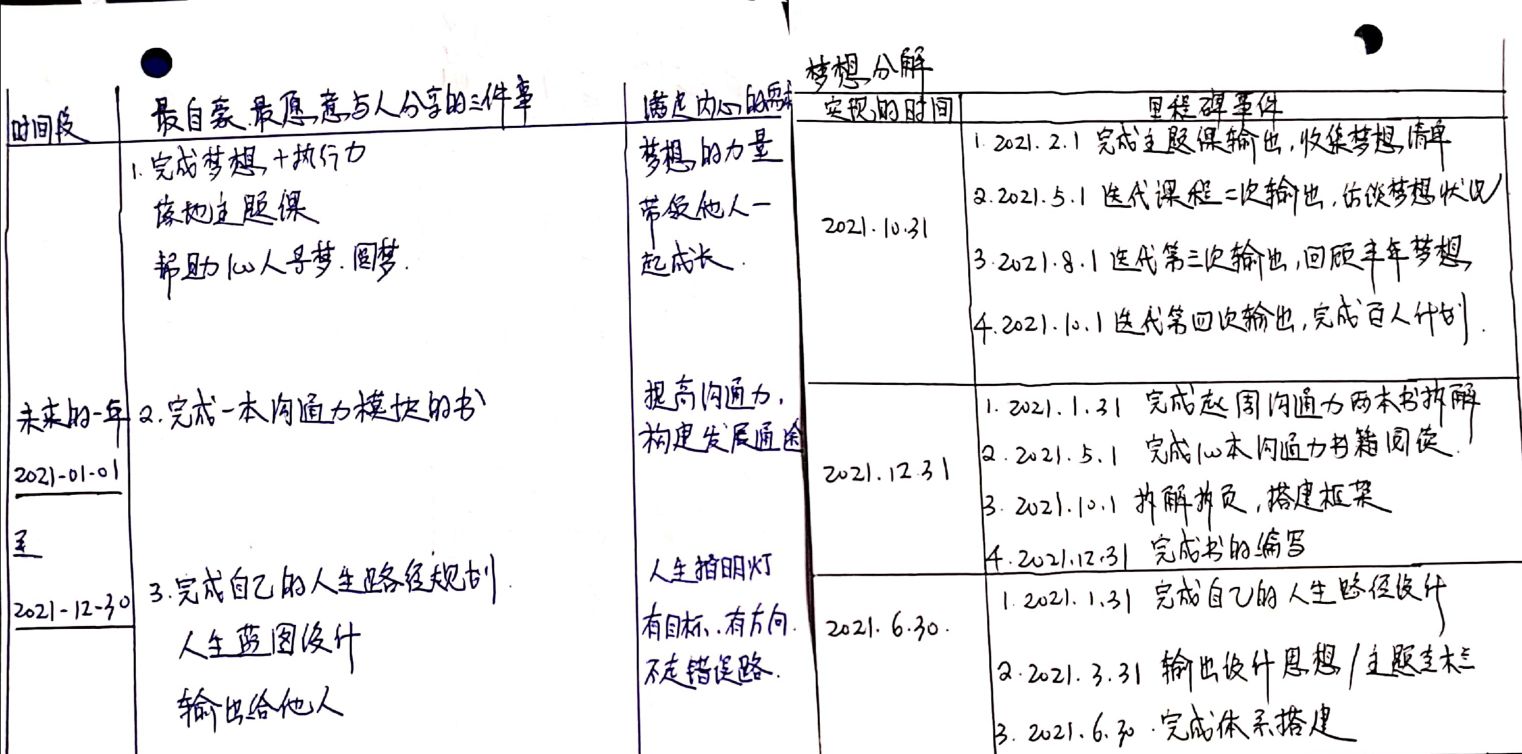 时间段
最自豪.最愿意与人分享的三件事
满足内心的需求
未来的一年
2021-01-01
至
2021-12-30
1.完成梦想+执行力
落地主题课
帮助100人寻梦.圆梦.
梦想的力量
带领他人一
起成长.
2.完成一本沟通力模块的书
提高沟通力,
构建发展通途
3.完成自己的人生路径规划.
人生蓝图设计
输出给他人
人生指明灯
有目标、有方向.
不走错误路.
梦想分解
实现的时间
里程碑事件
2021.10.31
1.2021.2.1 完成主题课输出,收集梦想清单
2.2021.5.1 迭代课程二次输出,访谈梦想状况
3.2021.8.1 迭代第三次输出,回顾半年梦想
4.2021.10.1 迭代第四次输出,完成百人计划.
2021.12.31
1.2021.1.31 完成赵周沟通力两本书拆解
2.2021.5.1 完成100本沟通力书籍阅读.
3.2021.10.1 拆解拆页,搭建框架
4.2021.12.31 完成书的编写
2021.6.30.
1.2021.1.31 完成自己的人生路径设计
2.2021.3.31 输出设计思想/主题
3.2021.6.30.完成体系搭建